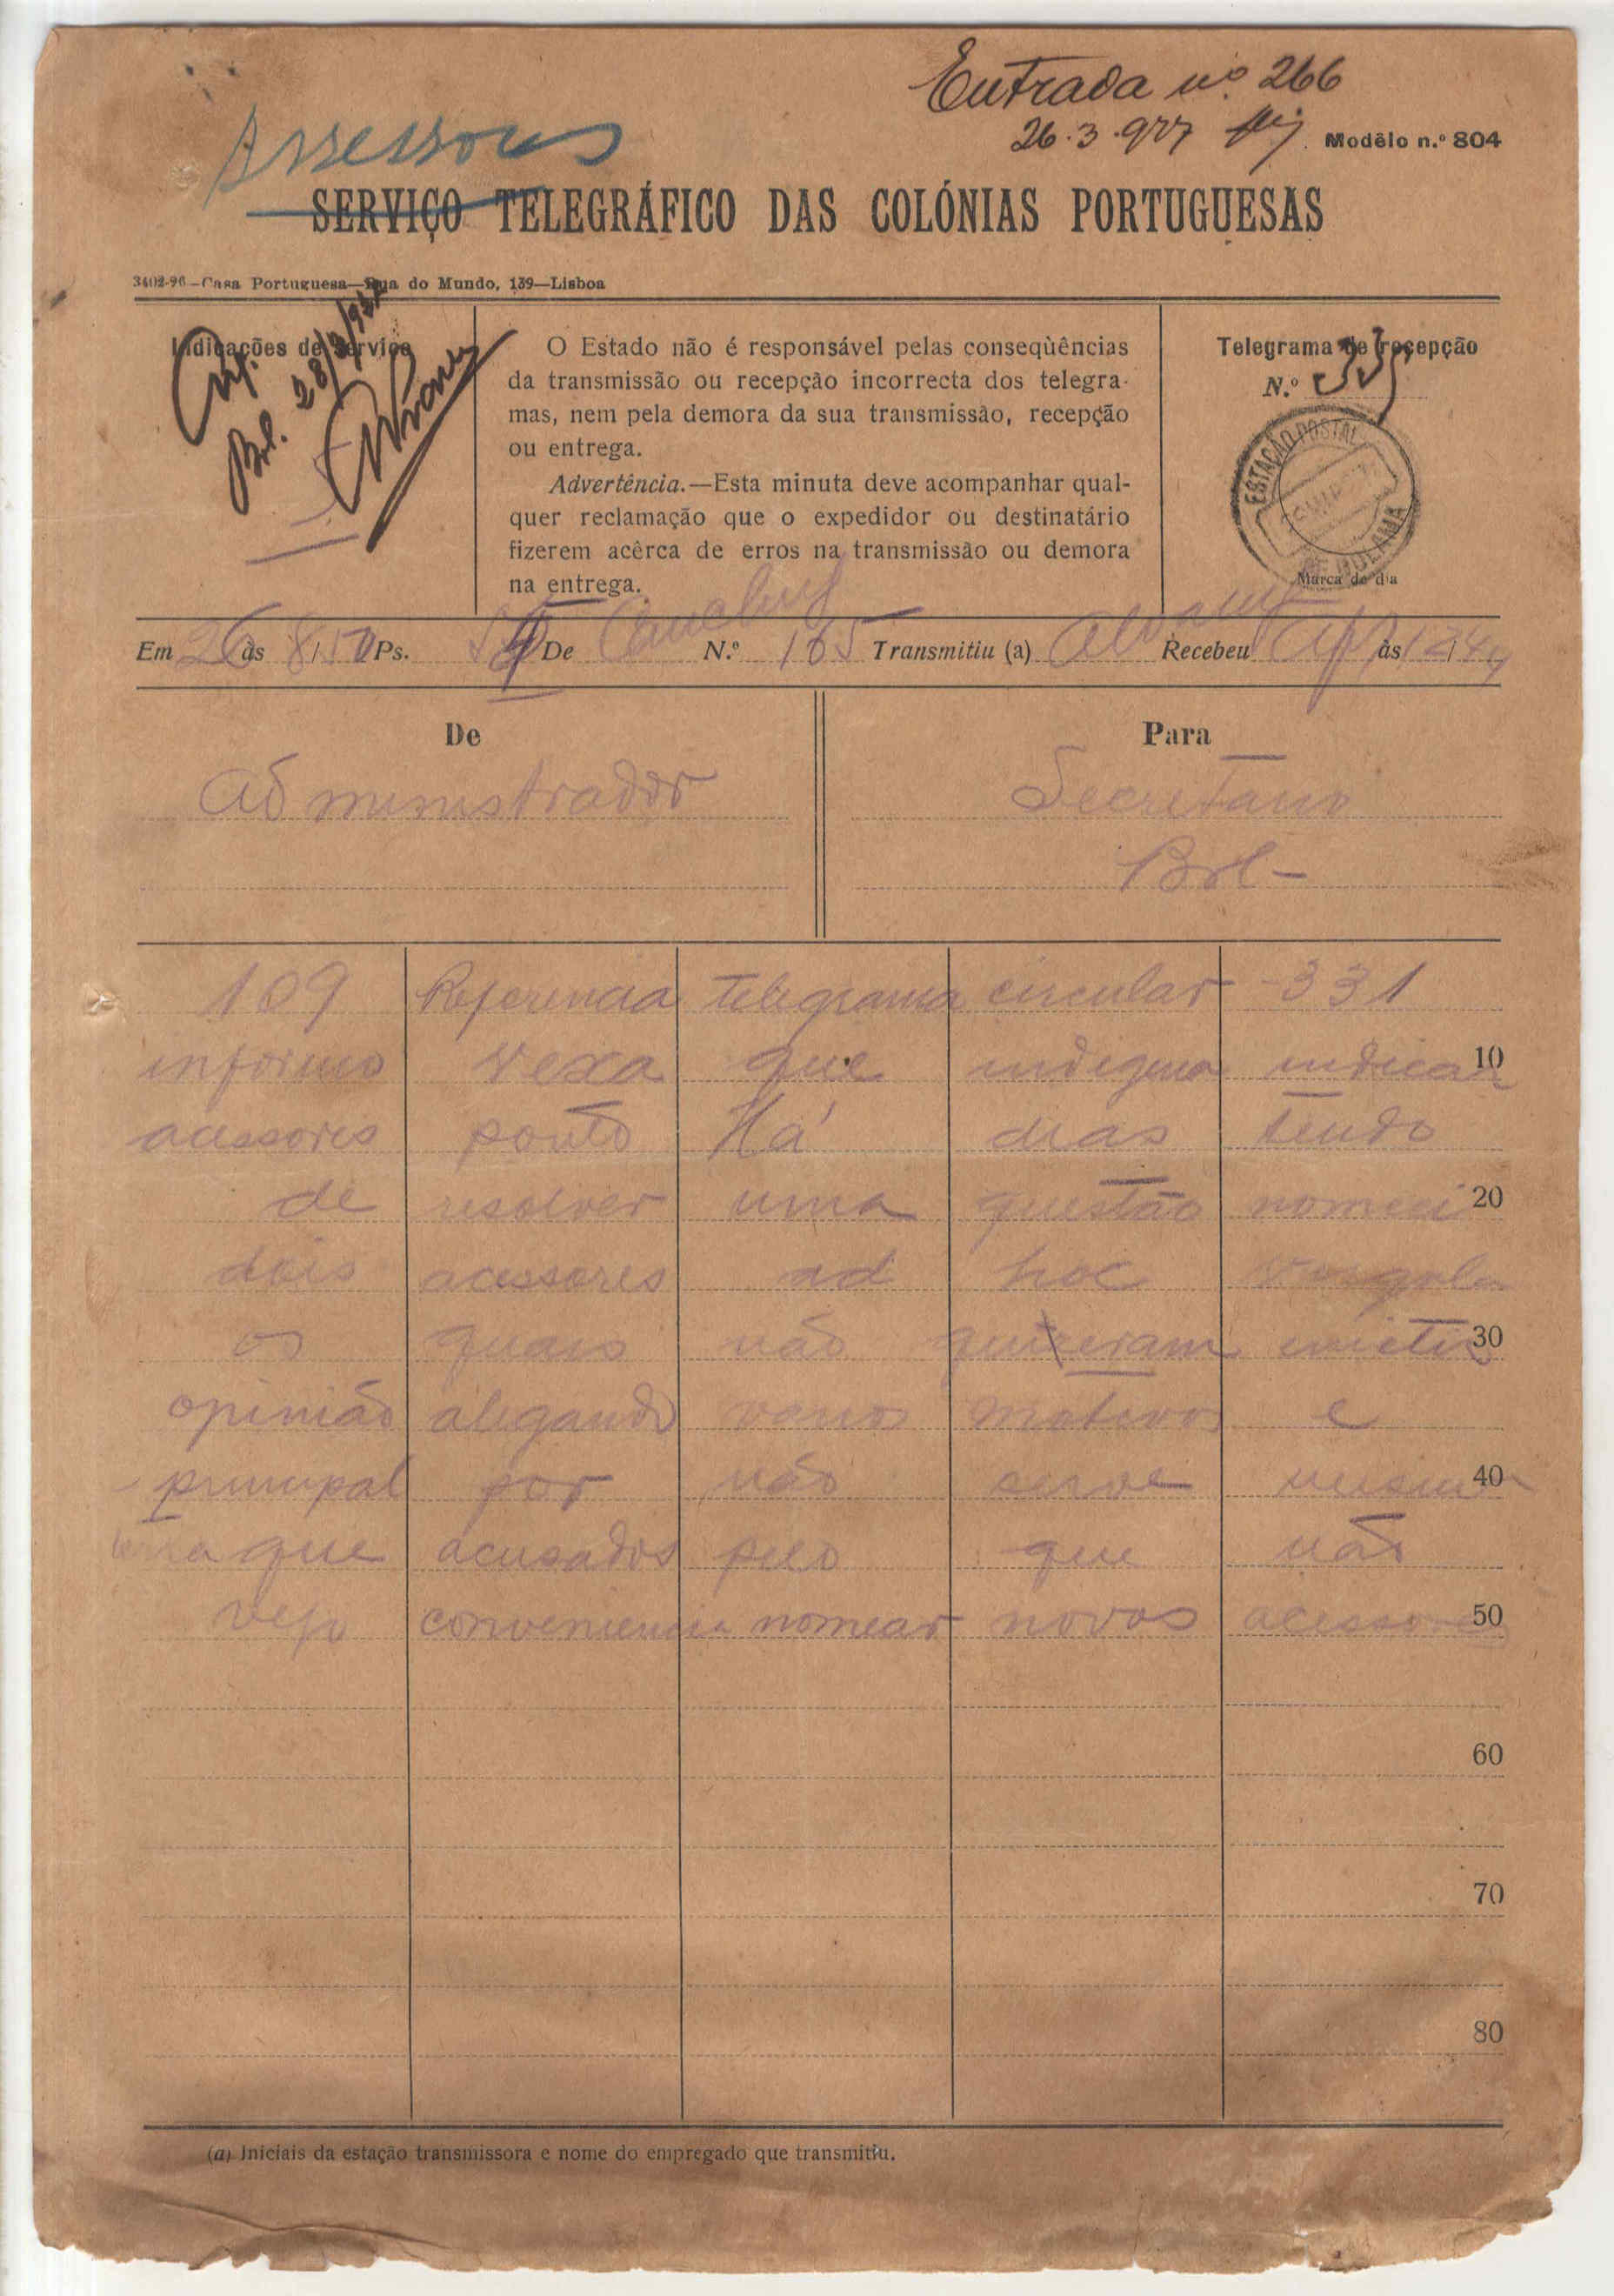 Entrada nº 266
26.3.927
Modêlo n.º 804
Assessores
SERVIÇO TELEGRÁFICO DAS COLÓNIAS PORTUGUESAS
3402-96—Casa Portuguesa—Rua do Mundo, 139—Lisboa
Indicações de serviço
Bol. 28/3/927
O Estado não é responsável pelas conseqùências
da transmissão ou recepção incorrecta dos telegra-
mas, nem pela demora da sua transmissão, recepção
ou entrega.
Advertência.—Esta minuta deve acompanhar qual-
quer reclamação que o expedidor ou destinatário
fizerem acêrca de erros na transmissão ou demora
na entrega.
Telegrama de recepção
N.º
ESTAÇÃO POSTAL
DE BOLAMA
Marca do dia
Em 26 às 8/50 Ps. De N.º 165 Transmitiu (a) Recebeu às
De
Administrador
Para
Secretario
Bol-
109 Referencia telegrama circular -331
informo Vexa que indigena indicar 10
acessores ponto Há dias tendo
de resolver uma questão nomeei 20
dois acessores ad hoc virgula
os quais não quizeram emetir 30
opinião alegando varios motivos e
principal por não serve 40
que acusados pelo que não
vejo conveniencia nomear novos acessores 50
60
70
80
(a) Iniciais da estação transmissora e nome do empregado que transmitiu.